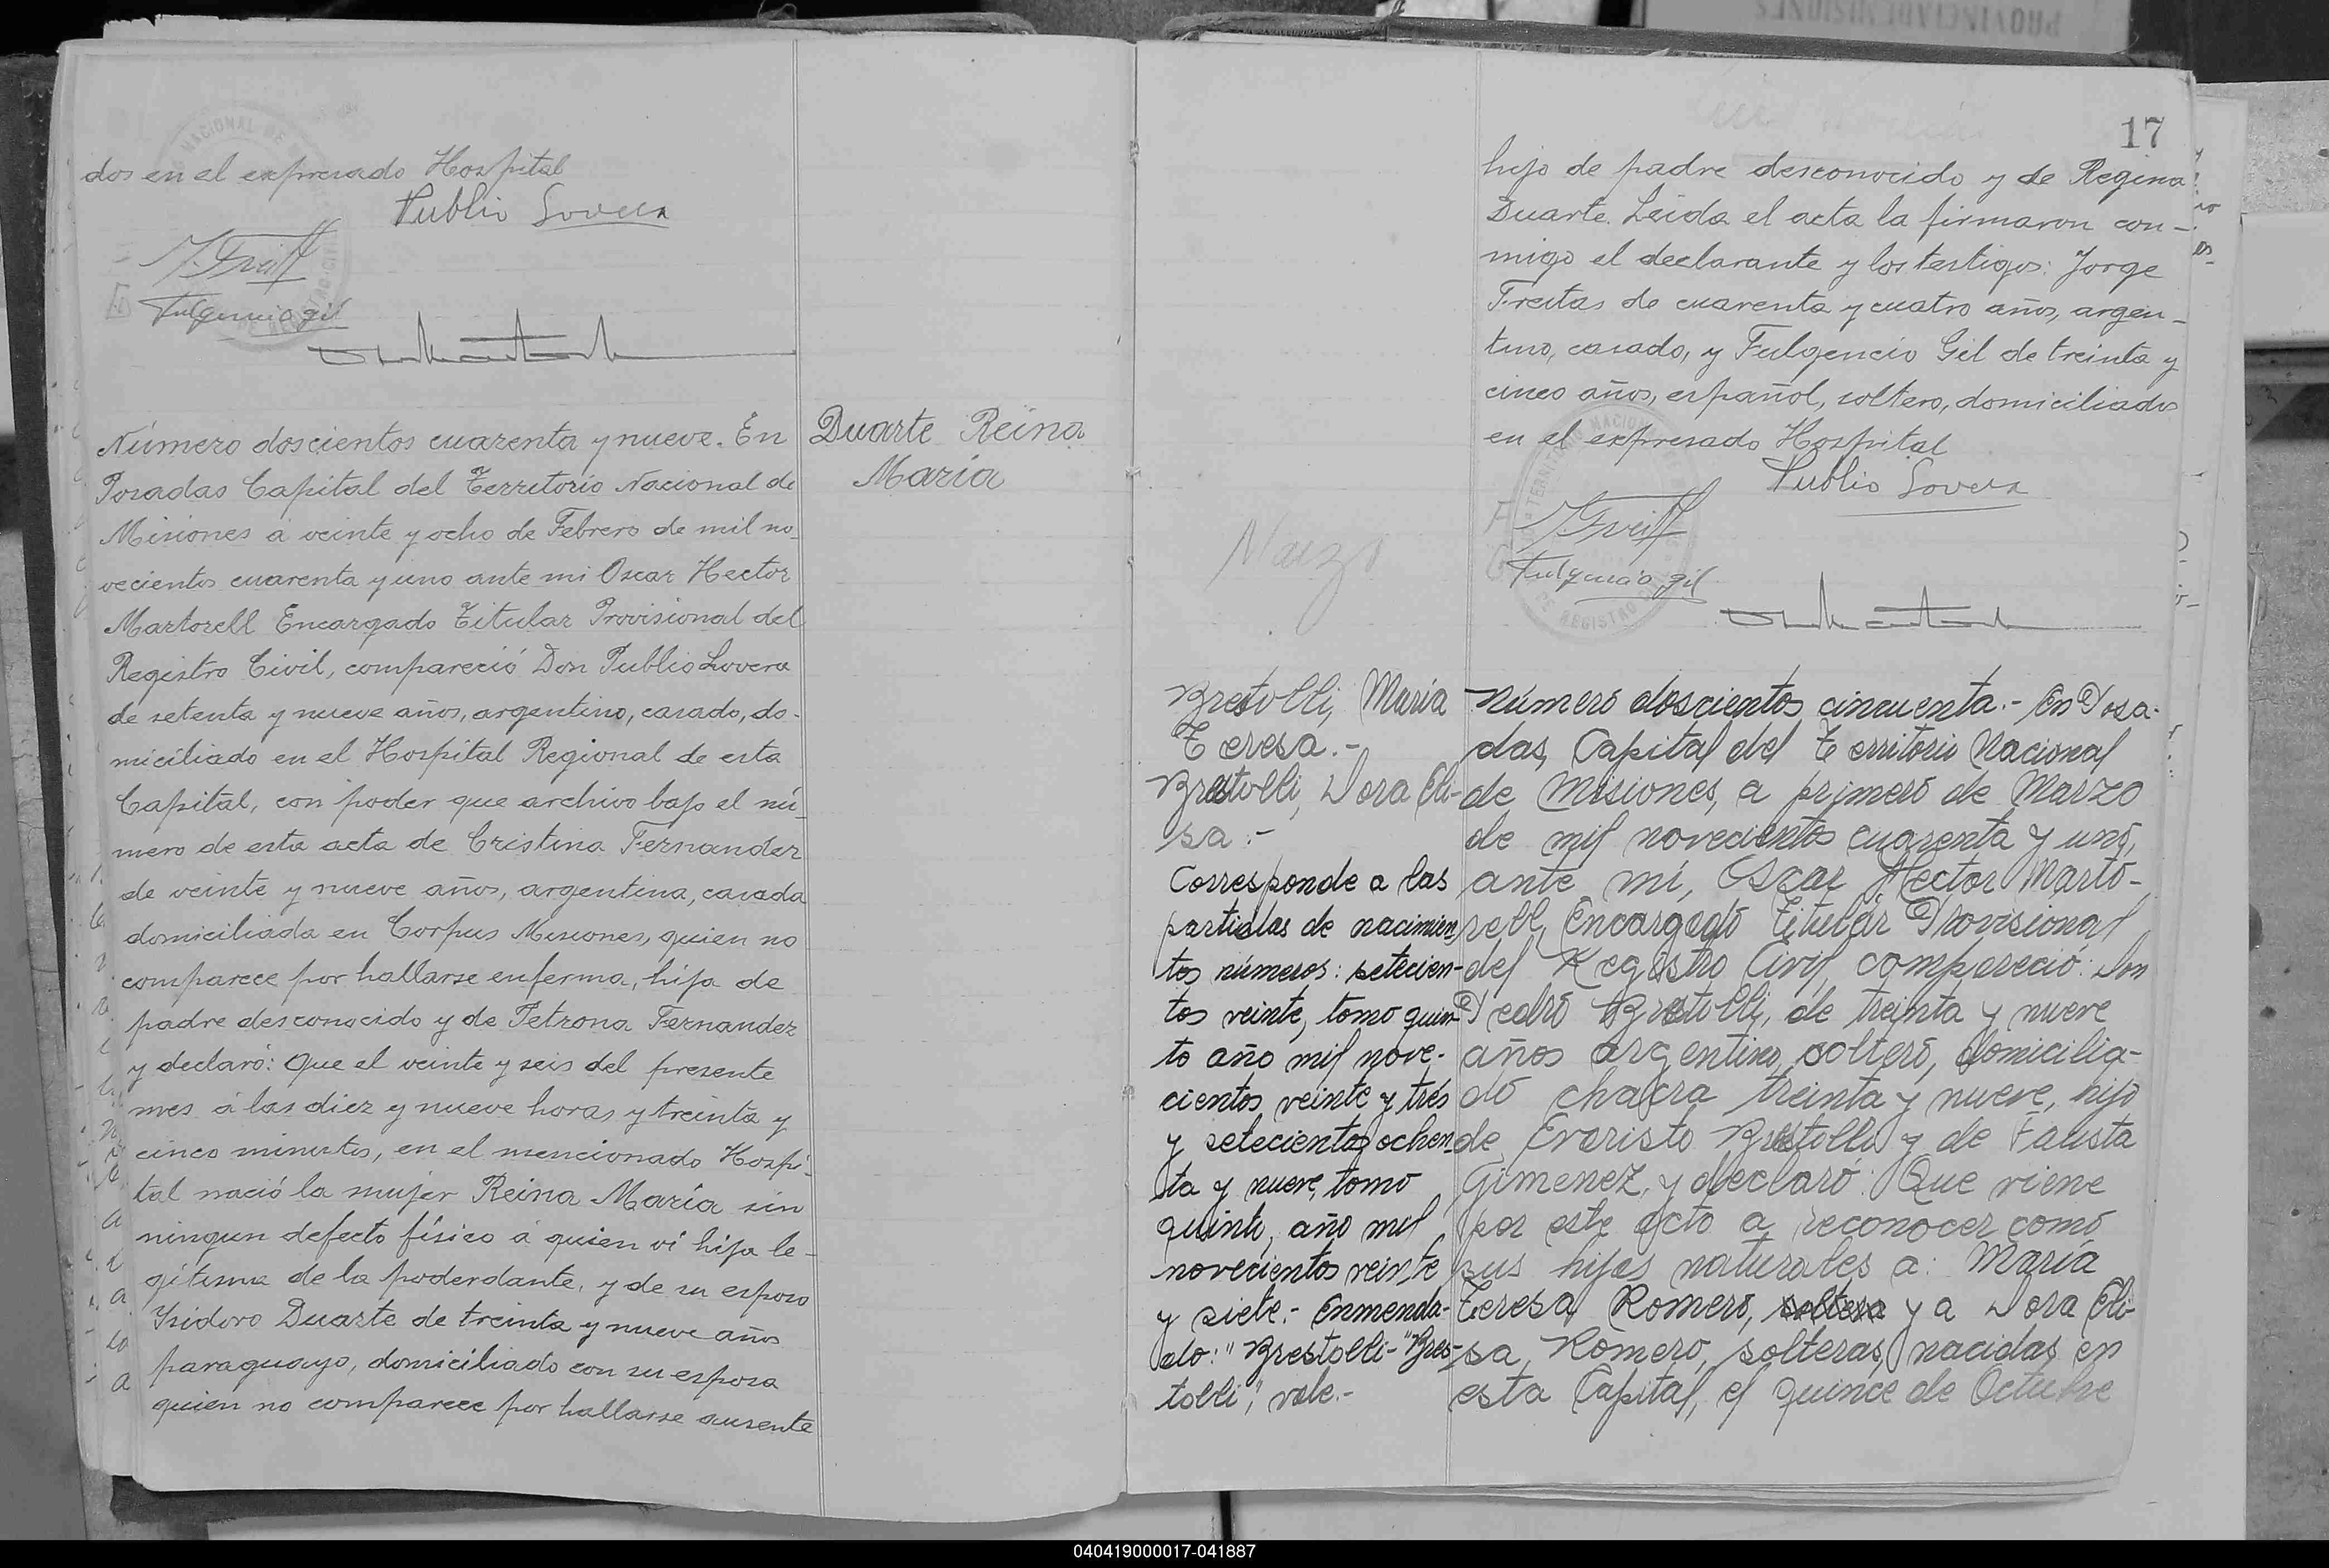 dos en el expresado Hospital
Publio Lovera
Fulgencio gil
Número doscientos cuarenta y nueve. En
Posadas Capital del Territorio Nacional de
Misiones á veinte y ocho de Febrero de mil no-
vecientos cuarenta y uno ante mi Oscar Hector
Martorell Encargado Titular Provisional del
Registro Civil, compareció Don Publio Lovera
de setenta y nueve años, argentino, casado, do-
miciliado en el Hospital Regional de esta
Capital, con poder que archivo bajo el nú-
mero de esta acta de Cristina Fernandez
de veinte y nueve años, argentina, casada
domiciliada en Corpus Misiones, quien no
comparece por hallarse enferma, hija de
padre desconocido y de Petrona Fernandez
y declaró: Que el veinte y seis del presente
mes á las diez y nueve horas y treinta y
cinco minutos, en el mencionado Hospi-
tal nació la mujer Reina María sin
ningun defecto físico á quien ví hija le-
gítima de la poderdante, y de su esposo
Isidoro Duarte de treinta y nueve años
paraguayo, domiciliado con su esposa
quien no comparece por hallarse ausente
Duarte Reina
María
17
hijo de padre desconocido y de Regina
Duarte. Leida el acta la firmaron con-
migo el declarante y los testigos: Jorge
Freitas de cuarenta y cuatro años, argen-
tino, casado, y Fulgencio Gil de treinta y
cinco años, español, soltero, domiciliados
en el expresado Hospital
Publio Lovera
Fulgencio gil
Marzo
Brestolli, María
Teresa.-
Brestolli, Dora Eli-
sa.-
Corresponde a las
partidas de nacimien-
tos números: setecien-
tos veinte, tomo quin-
to año mil nove-
cientos veinte y trés
y setecientos ochen-
ta y nueve, tomo
quinto, año mil
novecientos veinte
y siete.- Enmenda-
do: "Brestolli-"Bres-
tolli", vale.-
Número doscientos cincuenta.- En Posa-
das, Capital del Territorio Nacional
de Misiones, a primero de Marzo
de mil novecientos cuarenta y uno,
ante mí, Oscar Hector Marto-
rell, Encargado Titular Provisional
del Registro Civil, compareció: Don
Pedro Brestolli, de treinta y nueve
años argentino, soltero, domicilia-
do chacra treinta y nueve, hijo
de Evaristo Brestolli y de Fausta
Gimenez, y declaró: Que viene
por este acto a reconocer como
sus hijas naturales a: María
Teresa Romero, soltera y a Dora Eli-
sa Romero, solteras, nacidas en
esta Capital, el quince de Octubre
040419000017-041887